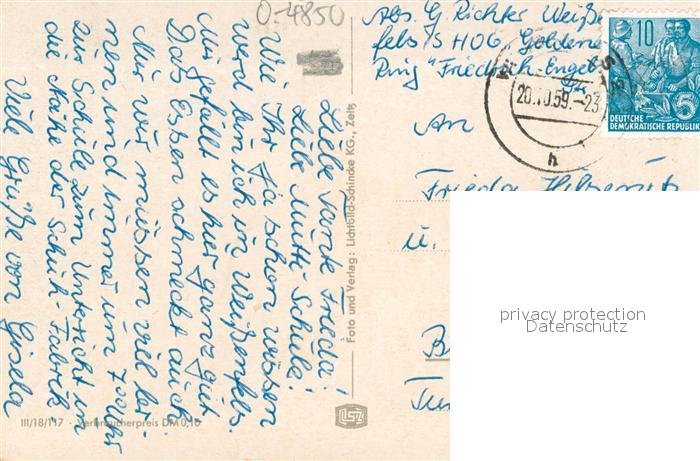 0-4850
Liebe Tante Frieda!
Liebe Mutti Schulz!
Wie Ihr ja schon wissen
werd bin ich in Weißenfels.
Mir gefällt es hier ganz gut
Das Essen schmeckt auch.
Nur wir müssen viel ler-
nen und immer um 7 00 Uhr
zur Schule zum Unterricht in
die Nähe der Schuh-Fabrik
Viele Grüße von Gisela
III/18/117 · Verbraucherpreis DM 0,10
Foto und Verlag: Lichtbild-Schincke KG., Zeitz
LSZ
Abs. G. Richter Weiße
fels/S HOG "Goldene
Ring" Friedrich Engel
Str
10
5
DEUTSCHE
DEMOKRATISCHE REPUBLIK
20.10.59.-23
h
An
Frieda
u.
privacy protection
Datenschutz